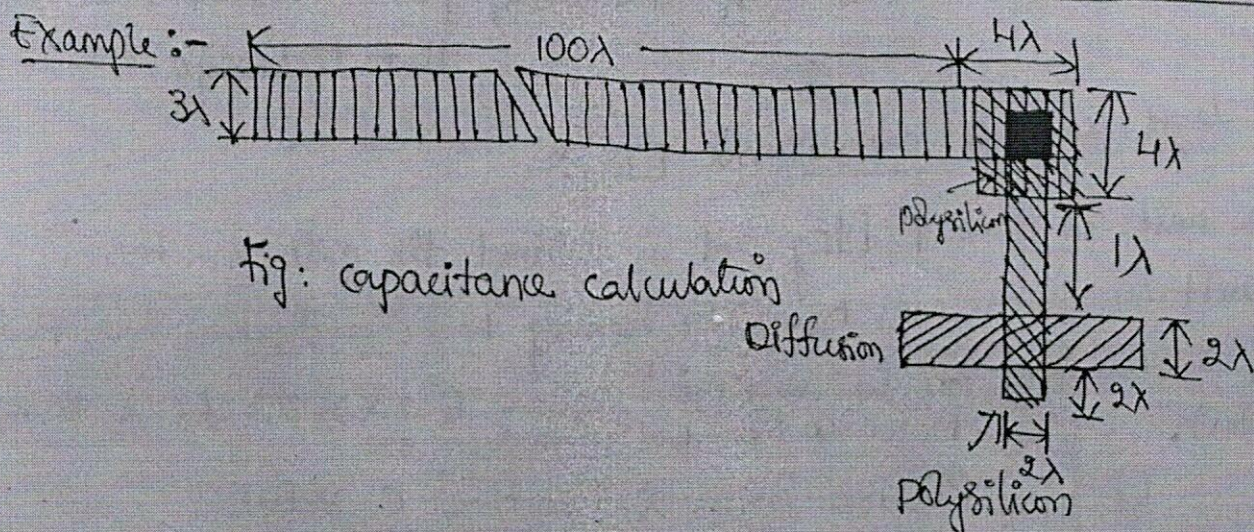 Example :-
100λ
4λ
3λ
4λ
polysilicon
1λ
Fig: capacitance calculation
Diffusion
2λ
2λ
2λ
polysilicon